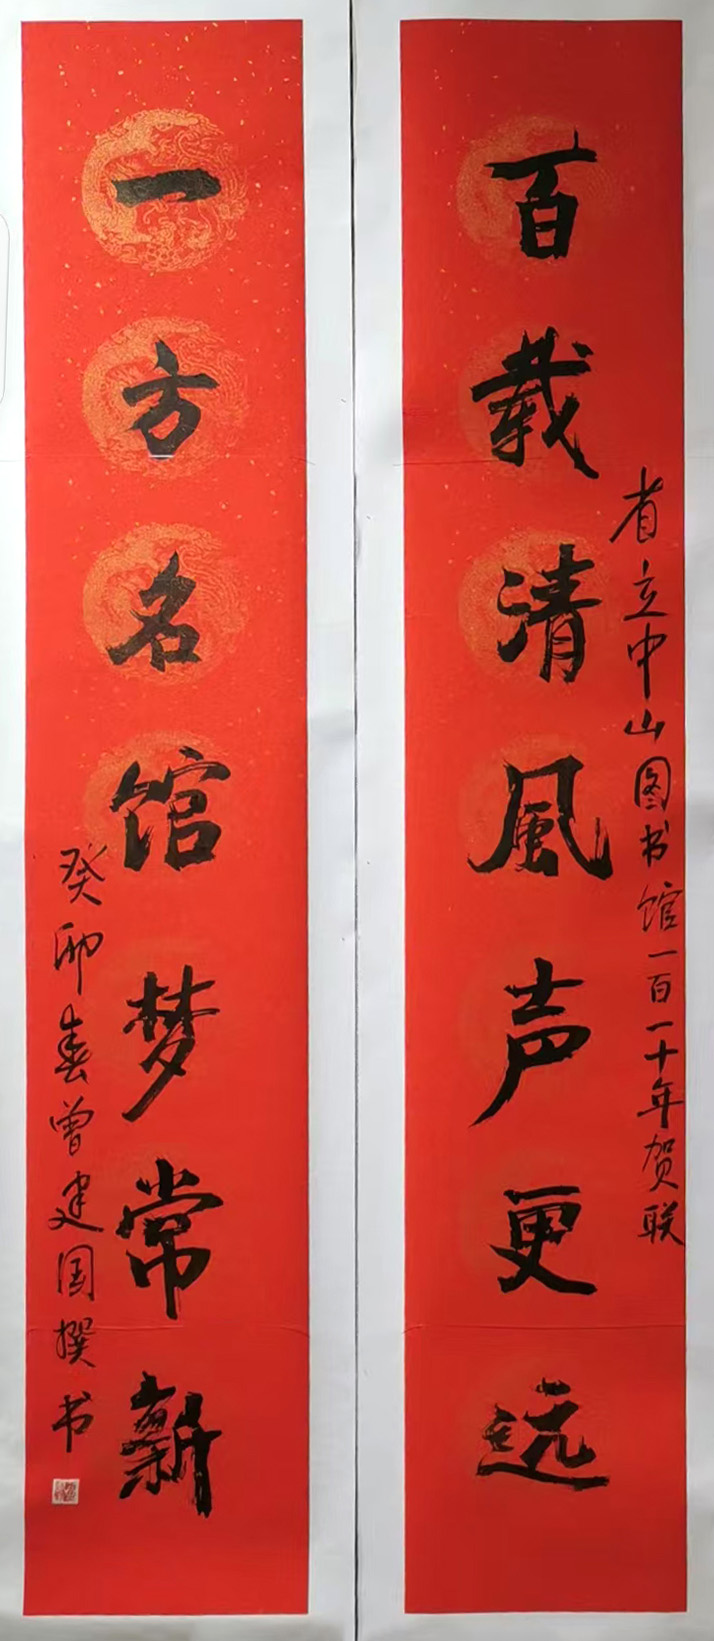 省立中山图书馆一百一十年贺联
百载清風声更远
一方名馆梦常新
癸卯春曾建国撰书